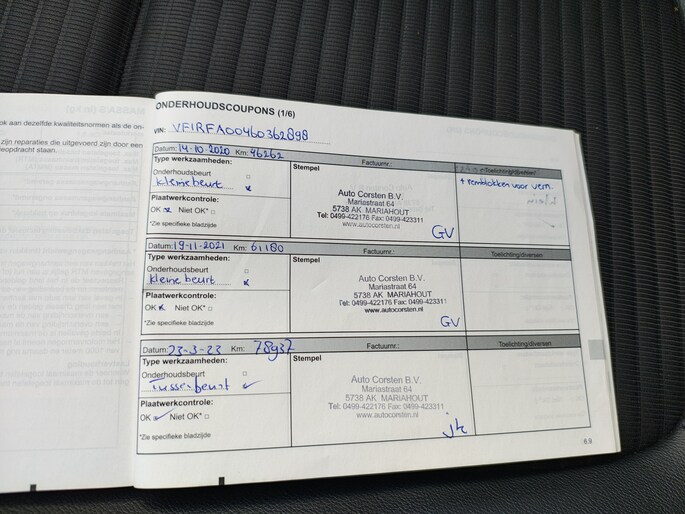 ok aan dezelfde kwaliteitsnormen als de on-
zijn reparaties die uitgevoerd zijn door een
ONDERHOUDSCOUPONS (1/6)
VIN: VF1RFA00460362898
Datum: 14-10-2020 Km: 46262 Factuurnr.: Toelichting/diversen
Type werkzaamheden: Stempel
Onderhoudsbeurt
kleine beurt x
+ remblokken voor vern.
Plaatwerkcontrole:
OK x Niet OK*
*Zie specifieke bladzijde
Auto Corsten B.V.
Mariastraat 64
5738 AK MARIAHOUT
Tel: 0499-422176 Fax: 0499-423311
www.autocorsten.nl
GV
Datum: 19-11-2021 Km: 61180 Factuurnr.: Toelichting/diversen
Type werkzaamheden: Stempel
Onderhoudsbeurt
kleine beurt x
Plaatwerkcontrole:
OK x Niet OK*
*Zie specifieke bladzijde
Auto Corsten B.V.
Mariastraat 64
5738 AK MARIAHOUT
Tel: 0499-422176 Fax: 0499-423311
www.autocorsten.nl
GV
Datum: 23-3-23 Km: 78937 Factuurnr.: Toelichting/diversen
Type werkzaamheden: Stempel
Onderhoudsbeurt
Tussenbeurt
Plaatwerkcontrole:
OK Niet OK*
*Zie specifieke bladzijde
Auto Corsten B.V.
Mariastraat 64
5738 AK MARIAHOUT
Tel: 0499-422176 Fax: 0499-423311
www.autocorsten.nl
6.9